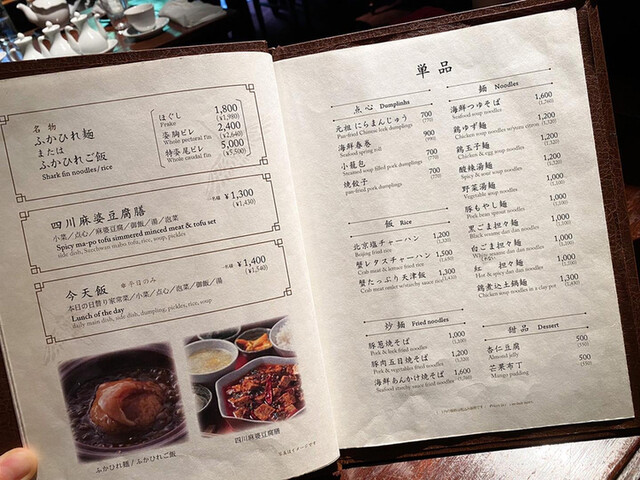 名物
ふかひれ麺
または
ふかひれご飯
Shark fin noodles/rice
ほぐし 1,800
Frake (¥1,980)
姿胸ビレ 2,400
Whole pectoral fin (¥2,640)
特姿尾ビレ 5,000
Whole caudal fin (¥5,500)
四川麻婆豆腐膳 一名様 ¥1,300
(¥1,430)
小菜／点心／麻婆豆腐／御飯／湯／泡菜
Spicy ma-po tofu simmered minced meat & tofu set
side dish, Szechwan mabo tofu, rice, soup, pickles
今天飯 ※平日のみ 一名様 ¥1,400
(¥1,540)
本日の日替り家常菜／小菜／点心／御飯／泡菜／湯
Lunch of the day
daily main dish, side dish, dumpling, pickles, rice, soup
ふかひれ麺 / ふかひれご飯
四川麻婆豆腐膳
写真はイメージです
単品
点心 Dumplinhs
元祖 にらまんじゅう 700
Pan-fried Chinese leek dumplings (770)
海鮮春巻 900
Seafood spring roll (990)
小籠包 700
Steamed soup filled pork dumplings (770)
焼餃子 700
pan-fried pork dumplings (770)
飯 Rice
北京塩チャーハン 1,200
Beijing fried rice (1,320)
蟹レタスチャーハン 1,500
Crab meat & lettuce fried rice
蟹たっぷり天津飯 1,300
Crab meat omelet w/starchy sauce rice
炒麺 Fried noodles
豚葱焼そば 1,000
Pork & leek fried noodles (1,100)
豚肉五目焼そば 1,200
Pork & vegetables fried noodles (1,320)
海鮮あんかけ焼そば 1,600
Seafood crunchy sauce fried noodles
麺 Noodles
海鮮つゆそば 1,600
Seafood soup noodles (1,760)
鶏ゆず麺 1,200
Chicken soup noodles w/yuzu citron (1,320)
鶏玉子麺 1,200
Chicken & egg soup noodles (1,320)
酸辣湯麺 1,200
Spicy & sour soup noodles (1,320)
野菜湯麺 1,000
Vegetable soup noodles (1,100)
豚もやし麺 1,000
Pork bean sprout noodles (1,100)
黒ごま担々麺 1,200
Black sesame dan dan noodles (1,320)
白ごま担々麺 1,200
White sesame dan dan noodles (1,320)
紅 担々麺 1,200
Hot & spicy dan dan noodles (1,320)
鶏煮込土鍋麺 1,300
Chicken soup noodles in a clay pot (1,430)
甜品 Dessert
杏仁豆腐 500
Almond jelly (550)
芒果布丁 500
Mango pudding (550)